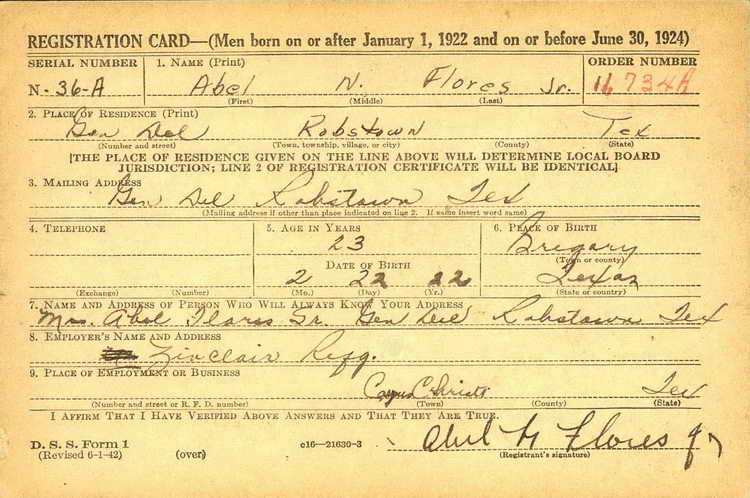 REGISTRATION CARD—(Men born on or after January 1, 1922 and on or before June 30, 1924)
SERIAL NUMBER 1. NAME (Print) ORDER NUMBER
N-36-A Abel N. Flores Jr. 11734A
(First) (Middle) (Last)
2. PLACE OF RESIDENCE (Print)
Gen Del Robstown Tex
(Number and street) (Town, township, village, or city) (County) (State)
[THE PLACE OF RESIDENCE GIVEN ON THE LINE ABOVE WILL DETERMINE LOCAL BOARD
JURISDICTION; LINE 2 OF REGISTRATION CERTIFICATE WILL BE IDENTICAL]
3. MAILING ADDRESS
Gen Del Robstown Tex
(Mailing address if other than place indicated on line 2. If same insert word same)
4. TELEPHONE 5. AGE IN YEARS 6. PLACE OF BIRTH
23 Gregory
(Town or county)
DATE OF BIRTH
2 22 22 Texas
(Exchange) (Number) (Mo.) (Day) (Yr.) (State or country)
7. NAME AND ADDRESS OF PERSON WHO WILL ALWAYS KNOW YOUR ADDRESS
Mrs. Abel Flores Sr. Gen Del Robstown Tex
8. EMPLOYER'S NAME AND ADDRESS
Sinclair Refg.
9. PLACE OF EMPLOYMENT OR BUSINESS
Corpus Christi Tex
(Number and street or R. F. D. number) (Town) (County) (State)
I AFFIRM THAT I HAVE VERIFIED ABOVE ANSWERS AND THAT THEY ARE TRUE.
D. S. S. Form 1
(Revised 6-1-42) (over) c16—21630-3 Abel N Flores Jr
(Registrant's signature)